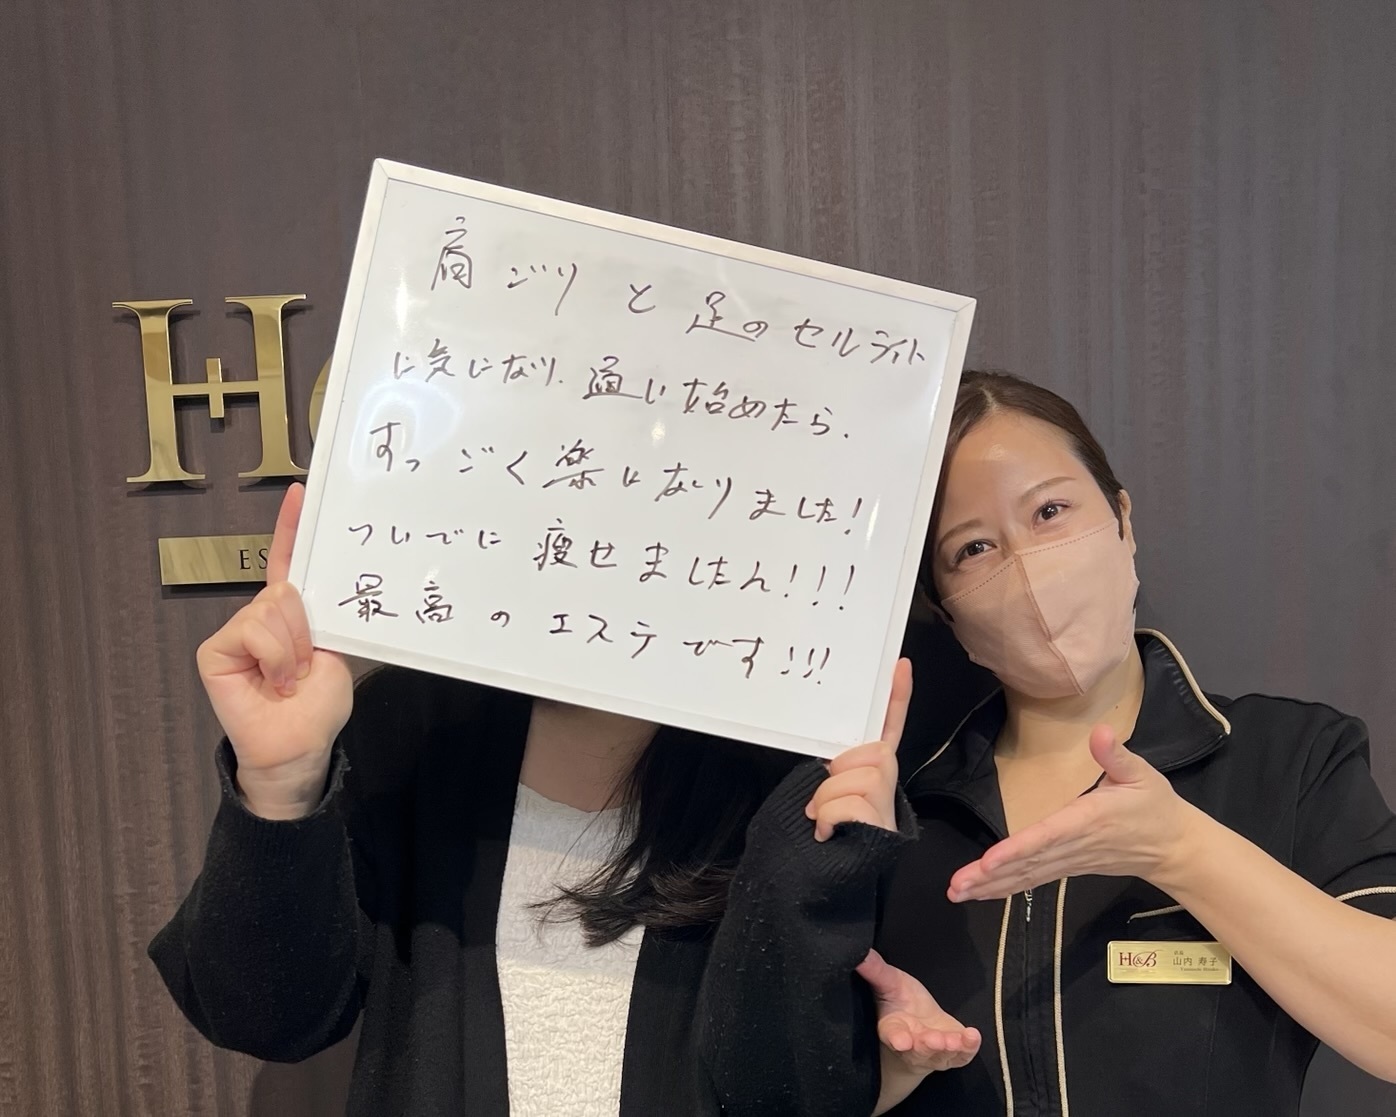 肩ごりと足のセルライト
に気になり、通い始めたら、
すっごく楽になりました!
ついでに痩せましたん!!!
最高のエステです!!!
H
ES
H&B
店長
山内 寿子